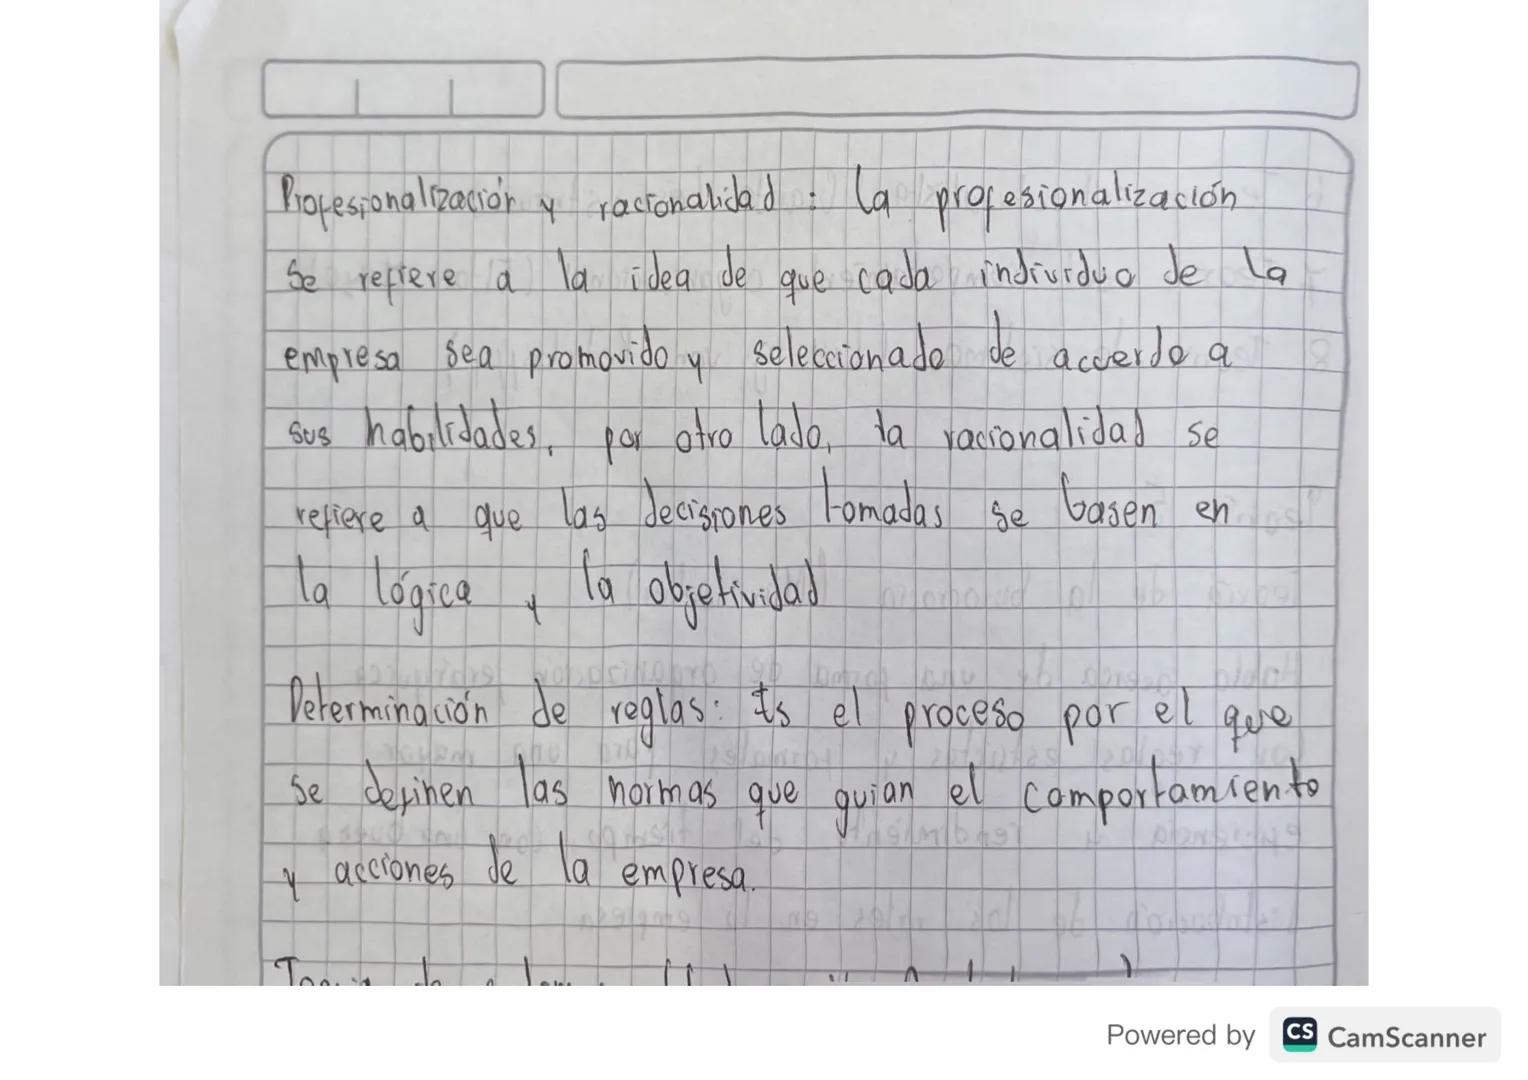 Profesionalización y racionalidad : la profesionalización
se refiere a la idea de que cada individuo de la
empresa sea promovido y seleccionado de acuerdo a
sus habilidades, por otro lado, la racionalidad se
refiere a que las decisiones tomadas se basen en
la lógica y la objetividad
Determinación de reglas: Es el proceso por el que
se definen las normas que guian el comportamiento
y acciones de la empresa.
Powered by CS CamScanner